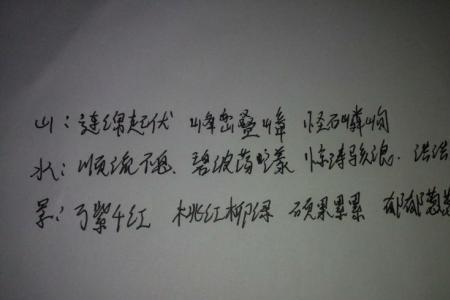 山：连绵起伏 峰峦叠嶂 怪石嶙峋
水：顺流不息、碧波荡漾 惊涛骇浪、浩浩
景：万紫千红 桃红柳绿 硕果累累 郁郁葱葱